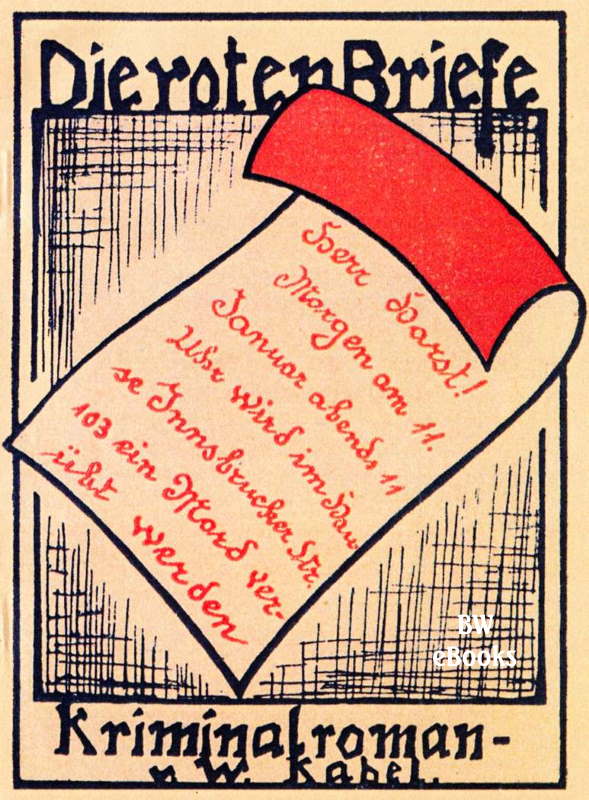 Die roten Briefe
Herr Harst!
Morgen am 11.
Januar abends 11
Uhr wird im Hau
se Innsbrucker Str.
103 ein Mord ver-
übt werden
BW
eBooks
Kriminalroman-
v W. Kabel.